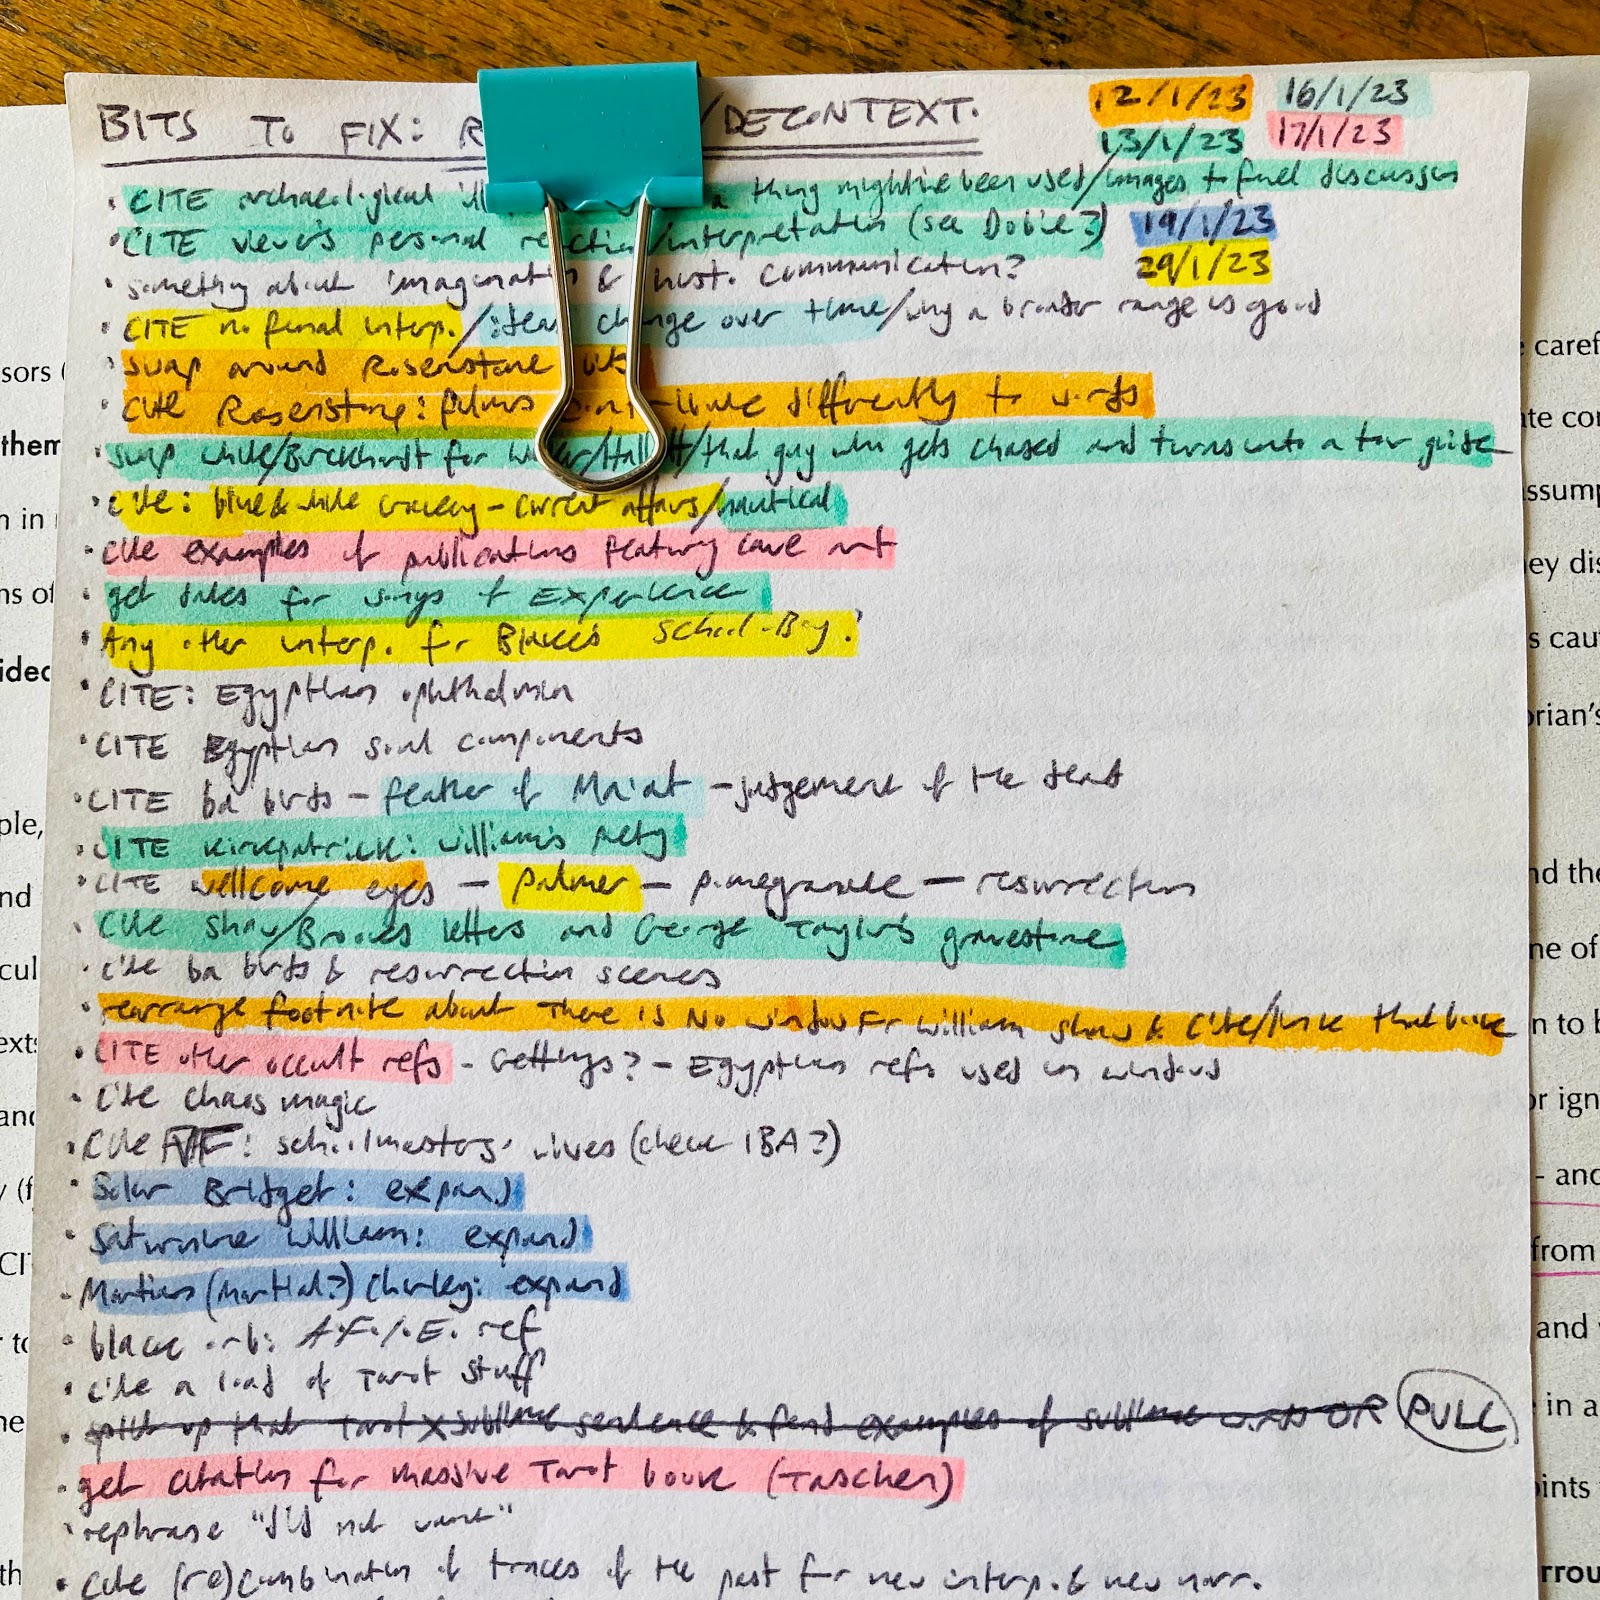 BITS TO FIX: R /DECONTEXT.
12/1/23 16/1/23
13/1/23 17/1/23
19/1/23
29/1/23
• CITE archaeological ill a thing might've been used/images to fuel discussion
• CITE viewer's personal /interpretation (see Dobie?)
• something about & hist. communication?
• CITE no final interp./ change over time/why a broader range is good
• swap around Rosenstone bits
• CITE Rosenstone: films differently to words
• swap White/Burckhardt for /that guy who gets chased and turns into a tour guide
• Cite: blue & white crockery - current affairs/nautical
• Cite examples of publications featuring cave art
• get dates for Songs of Experience
• Any other interp. for Blake's School-Boy?
• CITE: Egyptian ophthalmia
• CITE Egyptian soul components
• CITE ba birds - feather of Ma'at - judgement of the dead
• CITE Kirkpatrick: William's piety
• CITE wellcome eyes - palmer - pomegranate - resurrection
• Cite Shaw/Brookes letters and George Taylor's gravestone
• Cite ba birds & resurrection scenes
• rearrange footnote about There Is No Window For William Shaw & Cite/link that
• CITE other occult refs - Gettings? - Egyptian refs used in windows
• Cite chaos magic
• Cite : schoolmasters' wives (check IBA?)
• Solar Bridget: expand
• Saturnine William: expand
• Martian (Martial?) Charley: expand
• black orb: A.F./.E. ref
• cite a load of Tarot stuff
• split up that Tarot x sublime sentence & find examples of sublime OR PULL
• get citation for massive Tarot book (Taschen)
• rephrase "did not
• Cite (re)combination of traces of the past for new interp. & new narr.
sors (
them
n in
ns of
ided
ple,
nd
cul
exts
and
y (f
CI
r to
ne
th
e caref
te con
assump
ey dis
s cau
orian's
nd the
ne of
n to b
or ign
- and
from
and
in a
ints
rrou